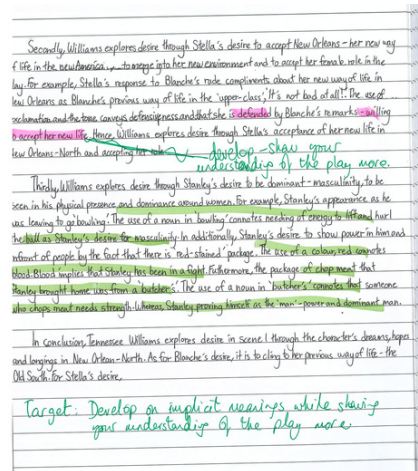 Secondly, Williams explores desire through Stella's desire to accept New Orleans - her new way
f life in the new America, to merge into her new environment and to accept her female role in the
lay. For example, Stella's response to Blanche's rude compliments about her new way of life in
ew Orleans as Blanche's previous way of life in the 'upper-class', 'It's not bad at all!'. The use of
exclamation and the tone conveys defensiveness and that she is defended by Blanche's remarks - willing
to accept her new life. Hence, Williams explores desire through Stella's acceptance of her new life in
ew Orleans - North and accepting her role
develop - show your
understanding of the play more.
Thirdly, Williams explores desire through Stanley's desire to be dominant - masculinity, to be
seen in his physical presence and dominance around women. For example, Stanley's appearance as he
was leaving to go bowling'. The use of a noun in 'bowling' connotes needing of energy to lift and hurl
he ball as Stanley's desire for masculinity. In additionally, Stanley's desire to show power in him and
infront of people by the fact that there is 'red-stained' package. The use of a colour, red connotes
blood. Blood implies that Stanley has been in a fight. Futhermore, the package of chop meat that
Stanley brought home was from a 'butcher's'. The use of a noun in 'butcher's' connotes that someone
who chops meat needs strength. Whereas, Stanley proving himself as the 'man' - power and dominant man.
In conclusion, Tennessee Williams explores desire in scene 1 through the character's dreams, hopes
and longings in New Orlean - North. As for Blanche's desire, it is to cling to her previous way of life - the
Old South. For Stella's desire,
Target: Develop on implicit meanings while showing
your understanding of the play more